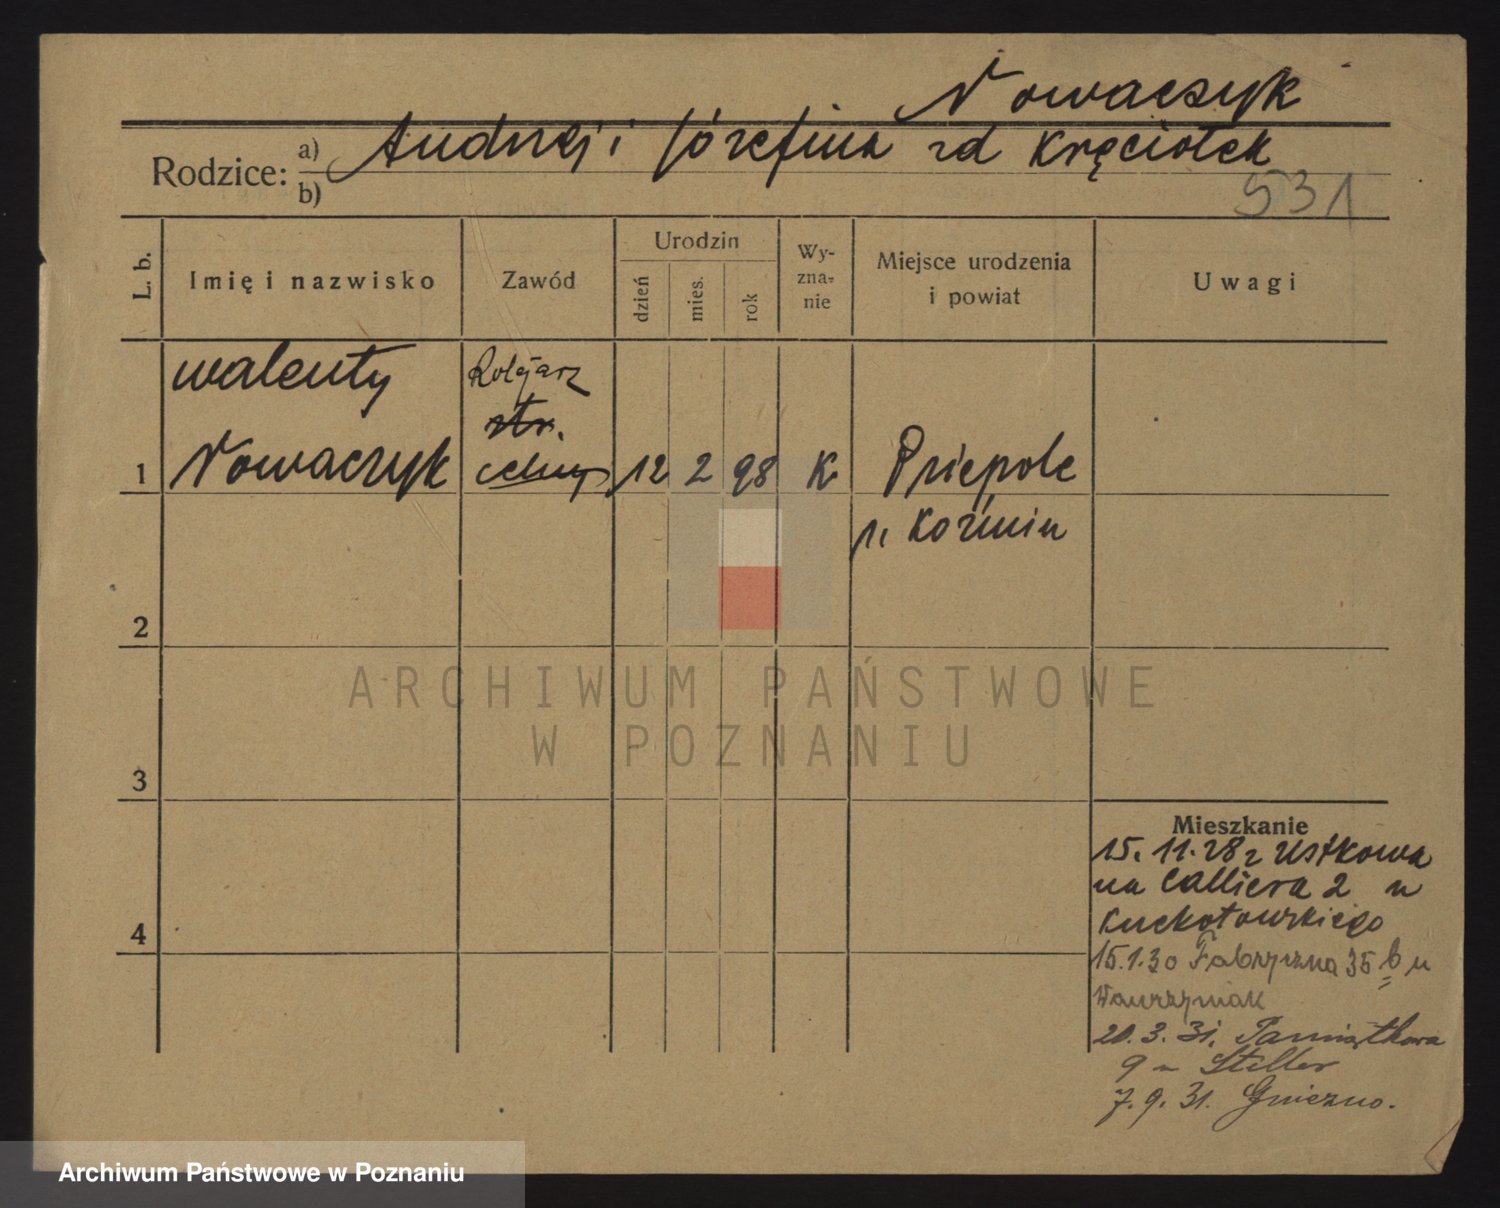 Nowaczyk
Rodzice: a) Andrzej i Józefina zd Kręciołek
b)
531
L. b.
Imię i nazwisko
Zawód
Urodzin
dzień
mies.
rok
Wy-
zna-
nie
Miejsce urodzenia
i powiat
Uwagi
walenty
Kolejarz
str.
1 Nowaczyk 12 2 98 K Psiepole
p. Koźmin
2
ARCHIWUM PAŃSTWOWE
W POZNANIU
3
Mieszkanie
15. 11. 28 z Ustkowa
na Calliera 2 u
4
15.1.30 Fabryczna 35 b u
Wawrzyniak
20. 3. 31. Pamiątkowa
9 u Stiller
7. 9. 31. Gniezno.
Archiwum Państwowe w Poznaniu